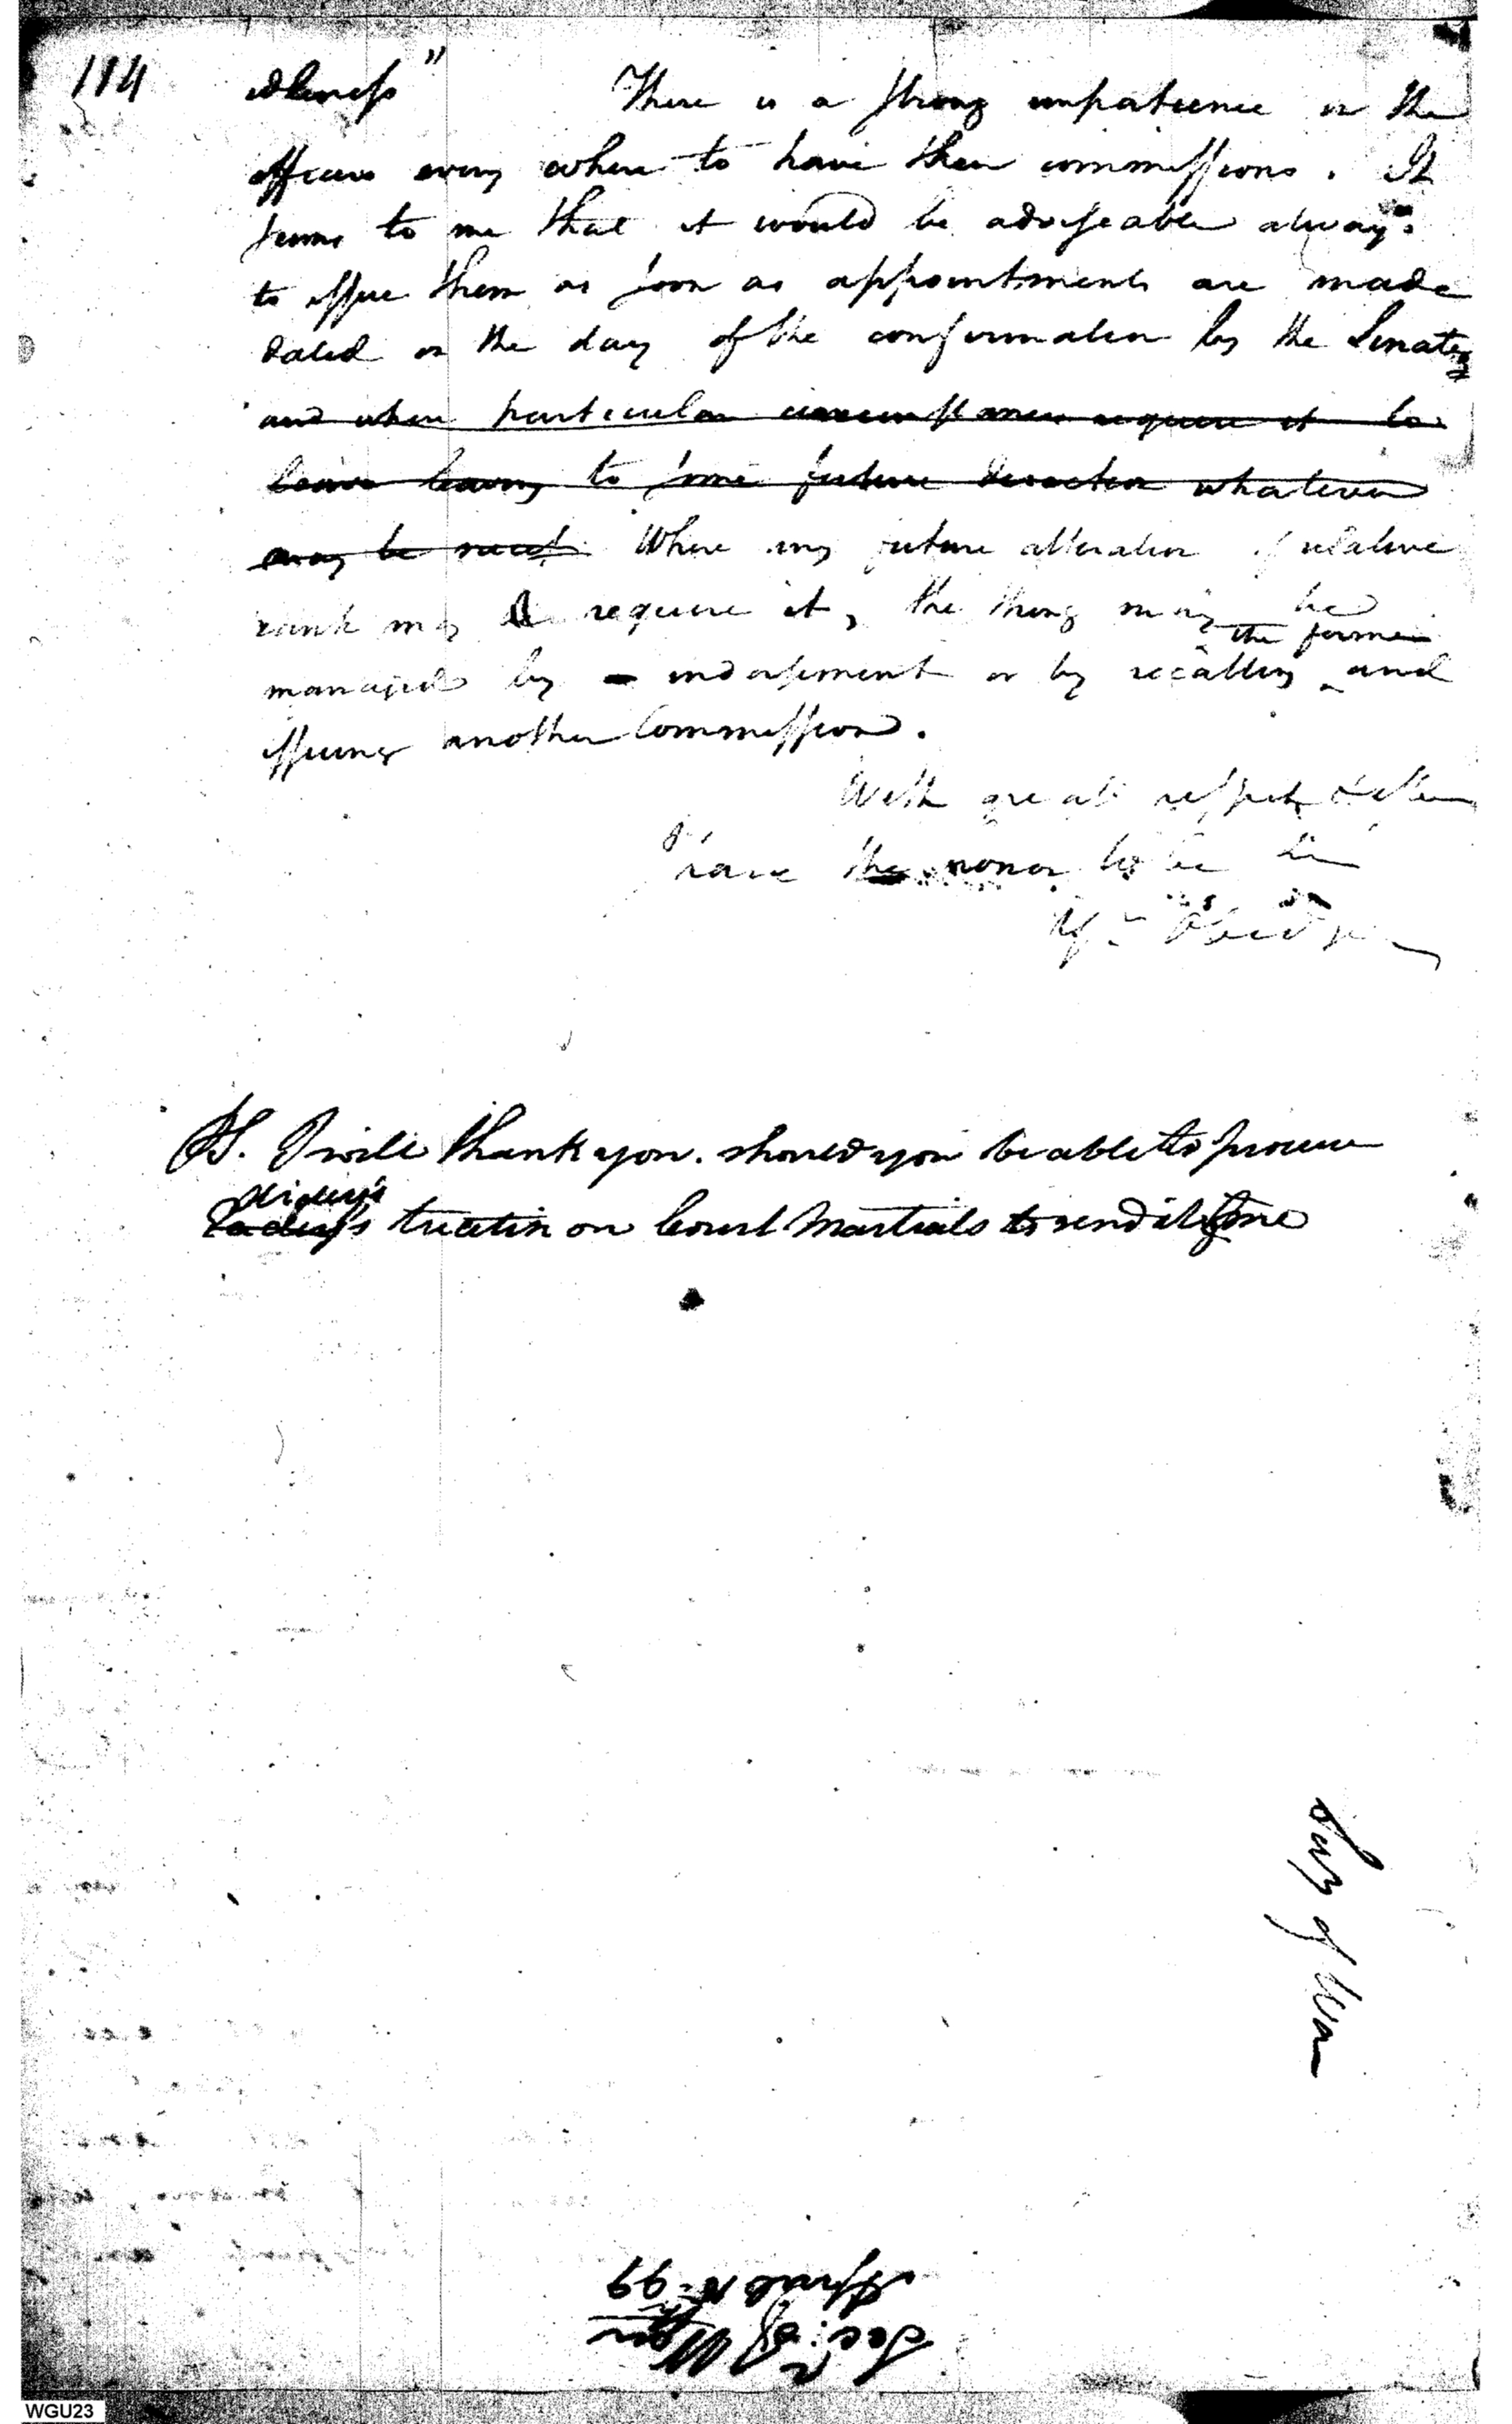 184
idleness"  There is a strong impatience in the
officers every where to have their commissions. It
seems to me that it would be adviseable always
to issue them as soon as appointments are made
dated on the day of the confirmation by the Senate
and when particular circumstances require it to
leave leaving to some future direction whatever
may be necess. Where any future alteration of relative
rank may require it, the thing may be
managed by indorsement or by recalling the former and
issuing another Commission.
With great respect & esteem
I have the honor to be Sir
Yr Obed
PS. I will thank you. should you be able to procure
Tadley's treatise on Court Martials to send it me
Secy of War
Sec: of War
April 8th 99
WGU23